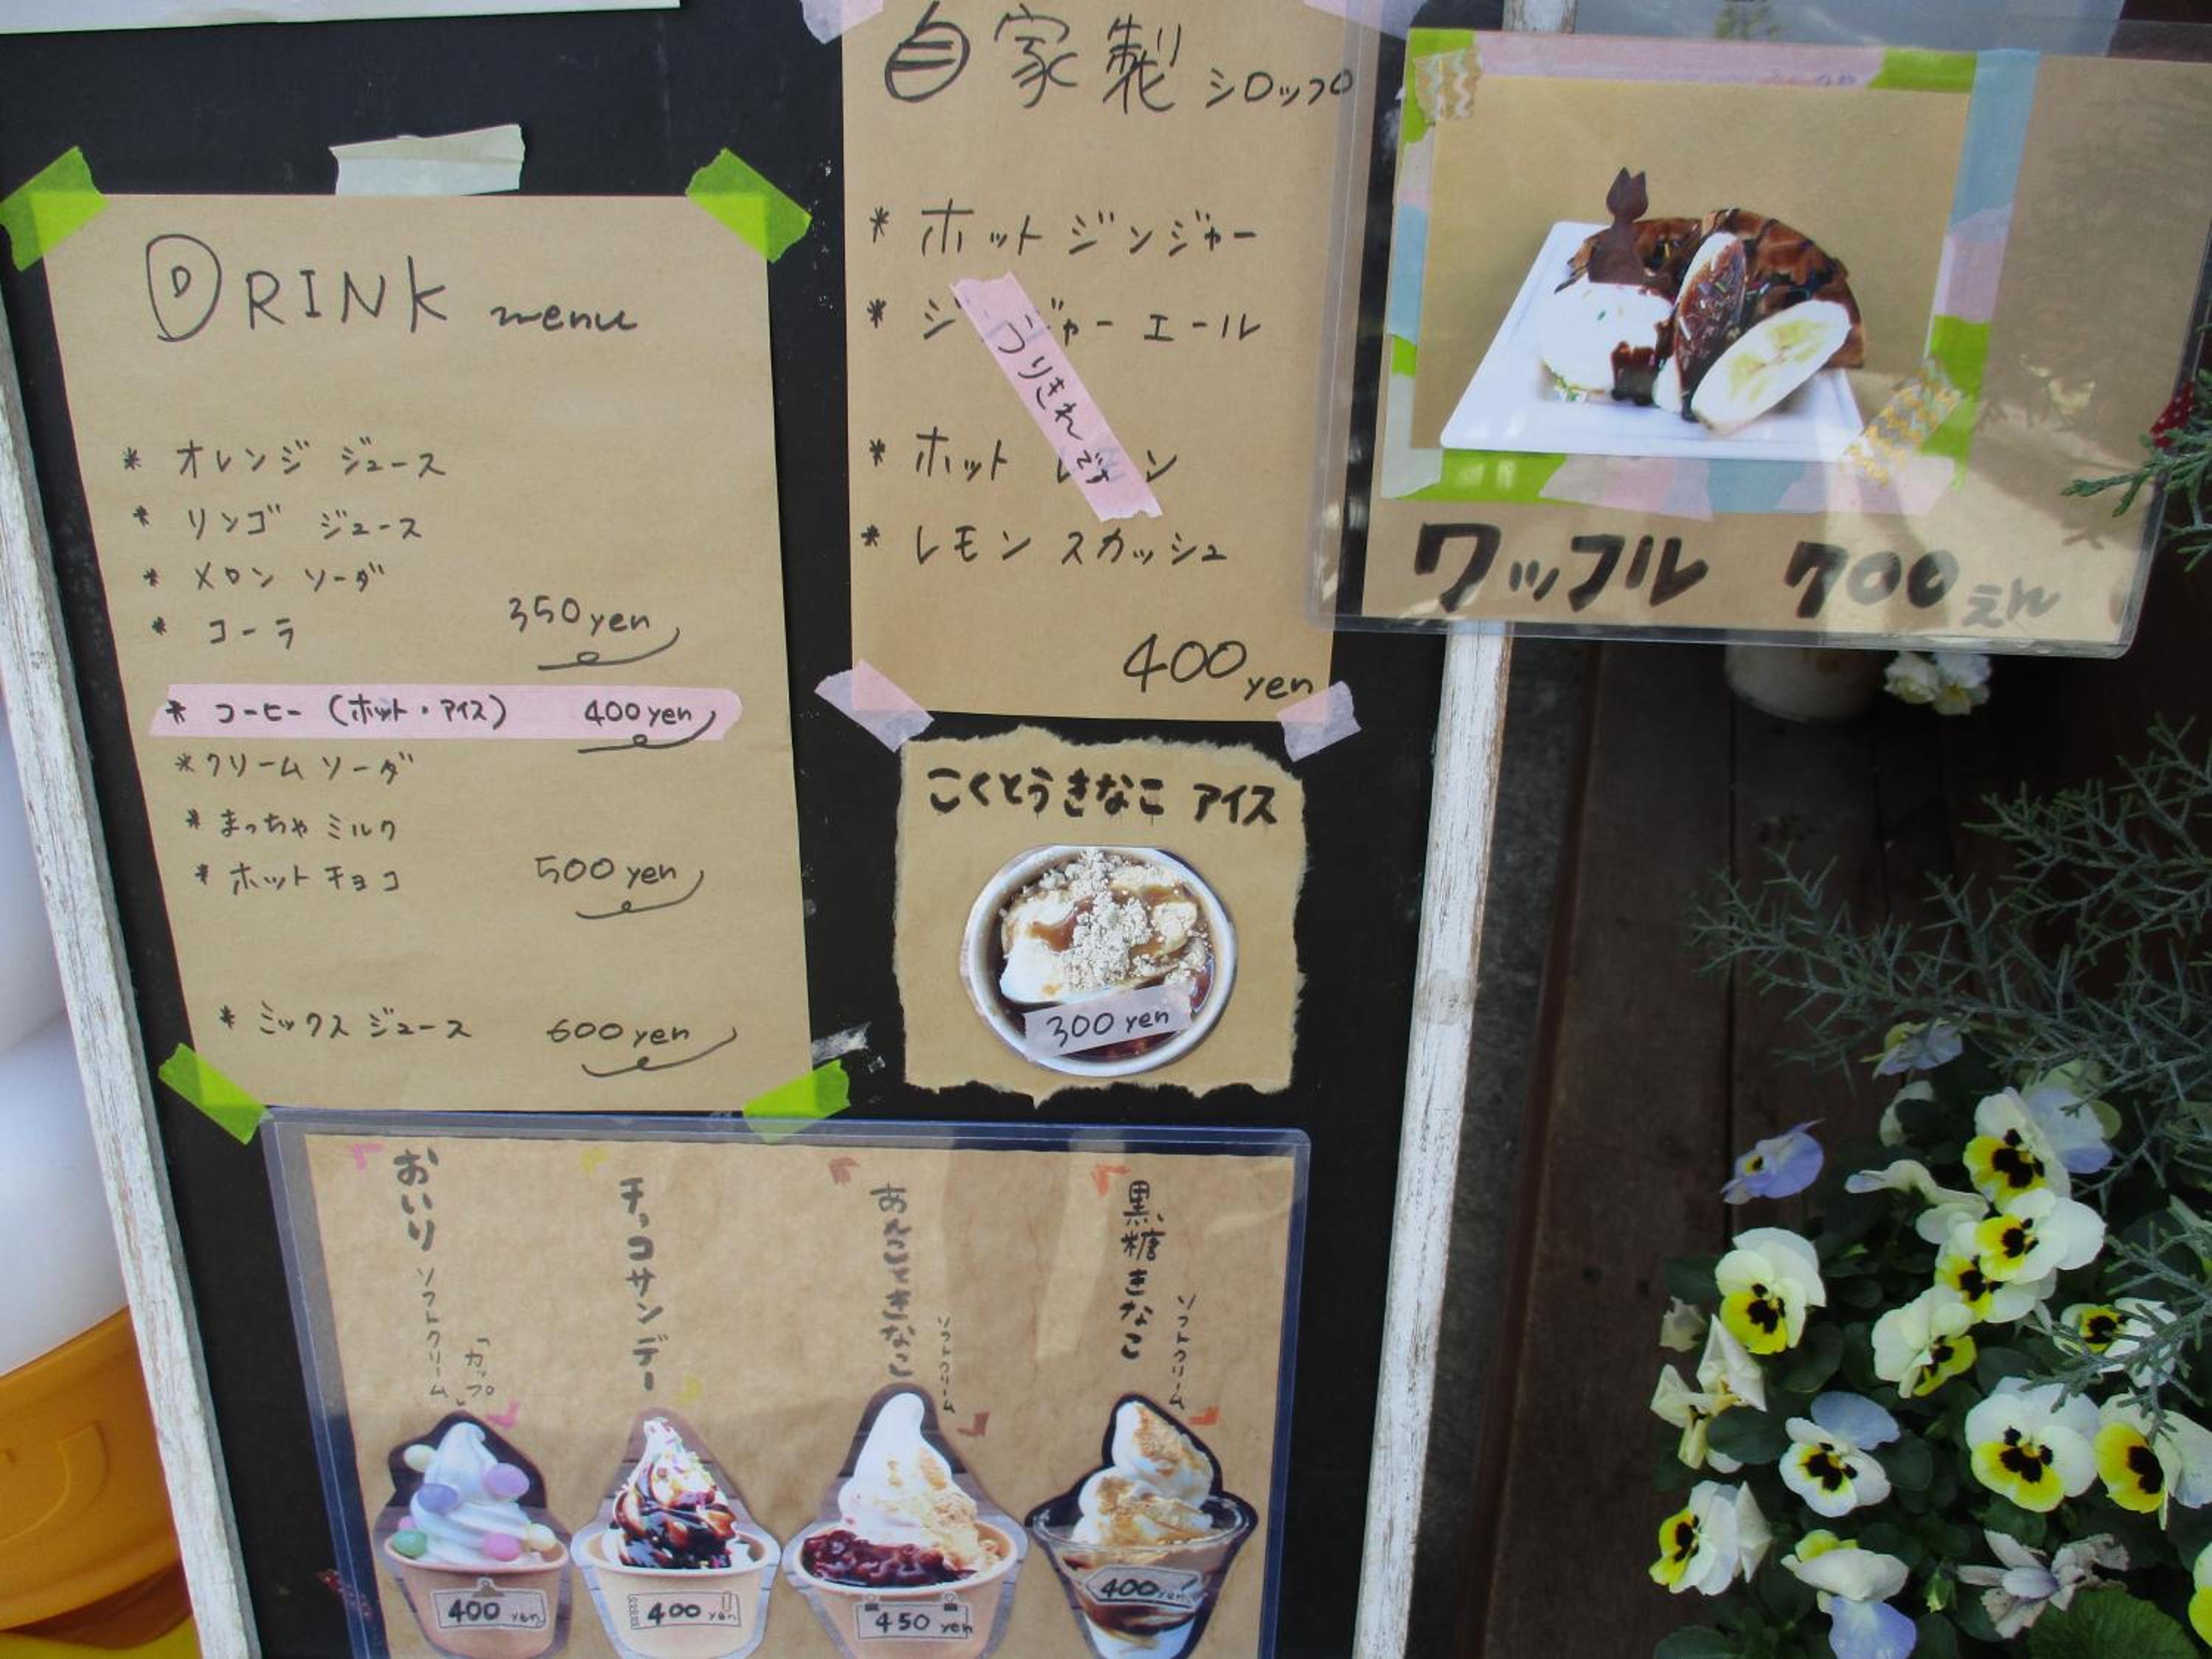 DRINK menu
* オレンジ ジュース
* リンゴ ジュース
* メロン ソーダ
* コーラ 350yen
* コーヒー (ホット・アイス) 400yen
* クリーム ソーダ
* まっちゃ ミルク
* ホット チョコ 500yen
* ミックス ジュース 600yen
自家製 シロップ
* ホット ジンジャー
* ジンジャー エール
うりきれです
* ホット レモン
* レモン スカッシュ
400yen
ワッフル 700えん
こくとうきなこ アイス
300yen
おいり ソフトクリーム
「カップ」
400yen
チョコサンデー
400yen
あんこときなこ ソフトクリーム
450yen
黒糖きなこ ソフトクリーム
400yen